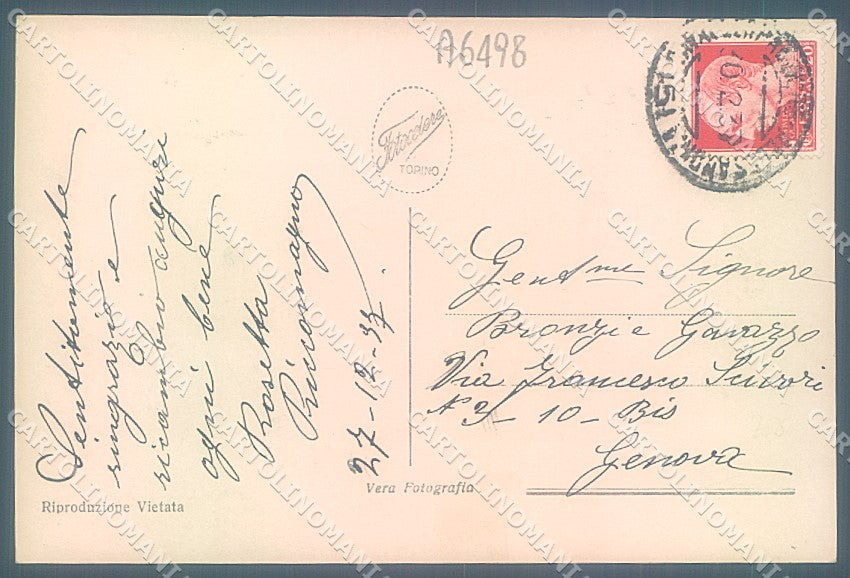 A6498
Fotocelere
TORINO
Sentitamente
ringrazio e
ricambio auguri
ogni bene
Rosetta
27-12-37
Gent me Signore
Bronzi e Gavazzo
Via Francesco
N 10 - Bis
Genova
Vera Fotografia
Riproduzione Vietata
CARTOLINOMANIA